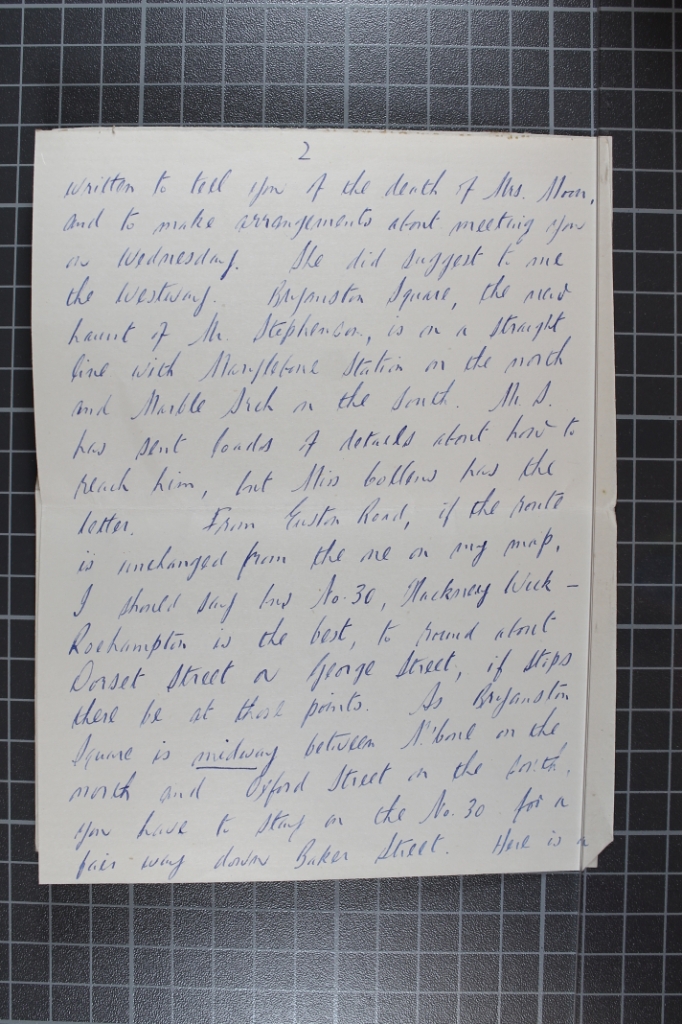 2
written to tell you of the death of Mrs. Moon,
and to make arrangements about meeting you
on Wednesday. She did suggest to me
the Westway. Bryanston Square, the new
haunt of Mr. Stephenson, is on a straight
line with Marylebone Station on the north
and Marble Arch on the South. Mr. S.
has sent loads of details about how to
reach him, but Miss Collens has the
letter. From Euston Road, if the route
is unchanged from the one on my map,
I should say bus No. 30, Hackney Wick –
Roehampton is the best, to round about
Dorset Street or George Street, if stops
there be at those points. As Bryanston
Square is midway between M'bone on the
north and Oxford Street on the south,
you have to stay on the No. 30 for a
fair way down Baker Street. Here is a